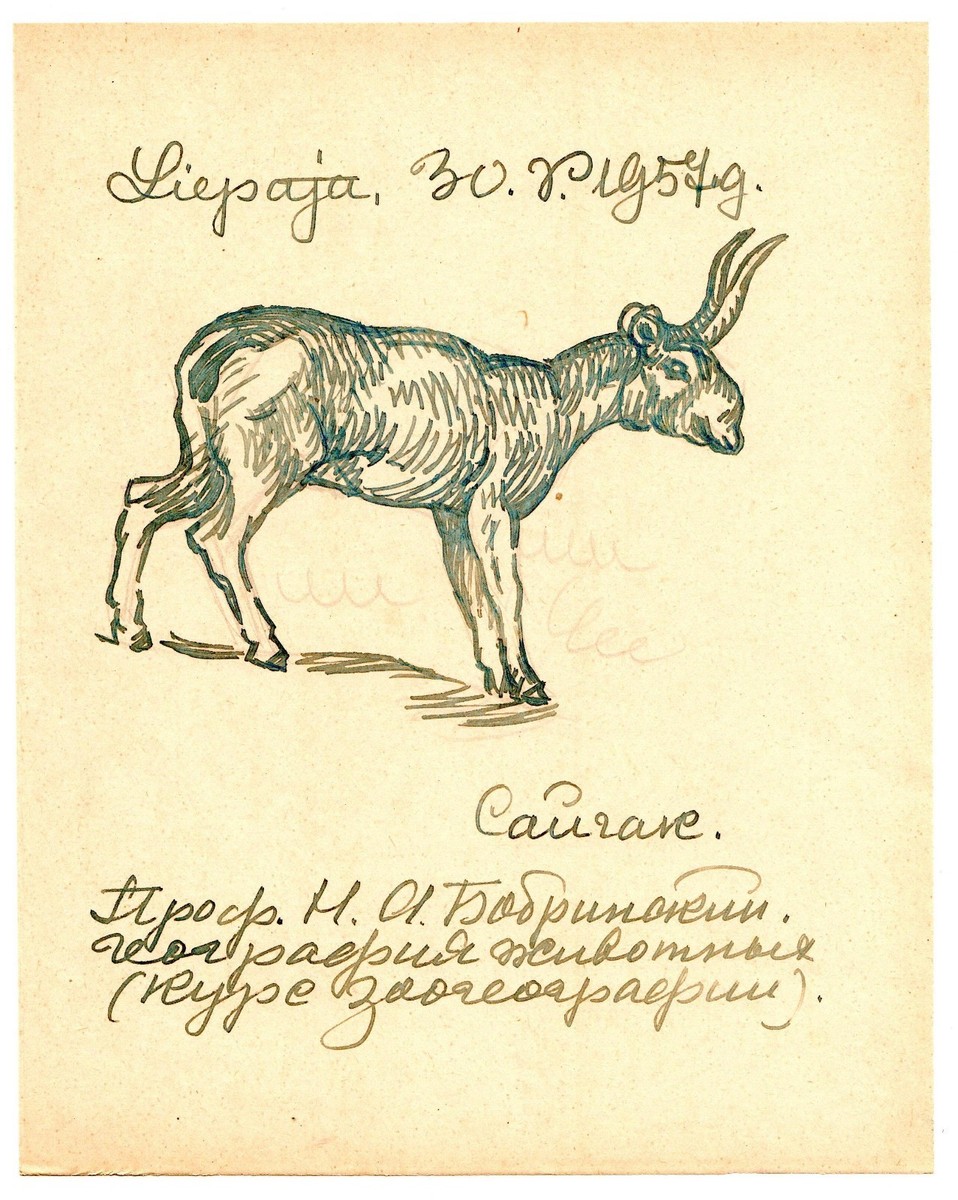 Liepaja, 30. V. 1957.g.
Сайгак.
Проф. Н. А. Бобринский.
география животных
(курс зоогеографии).